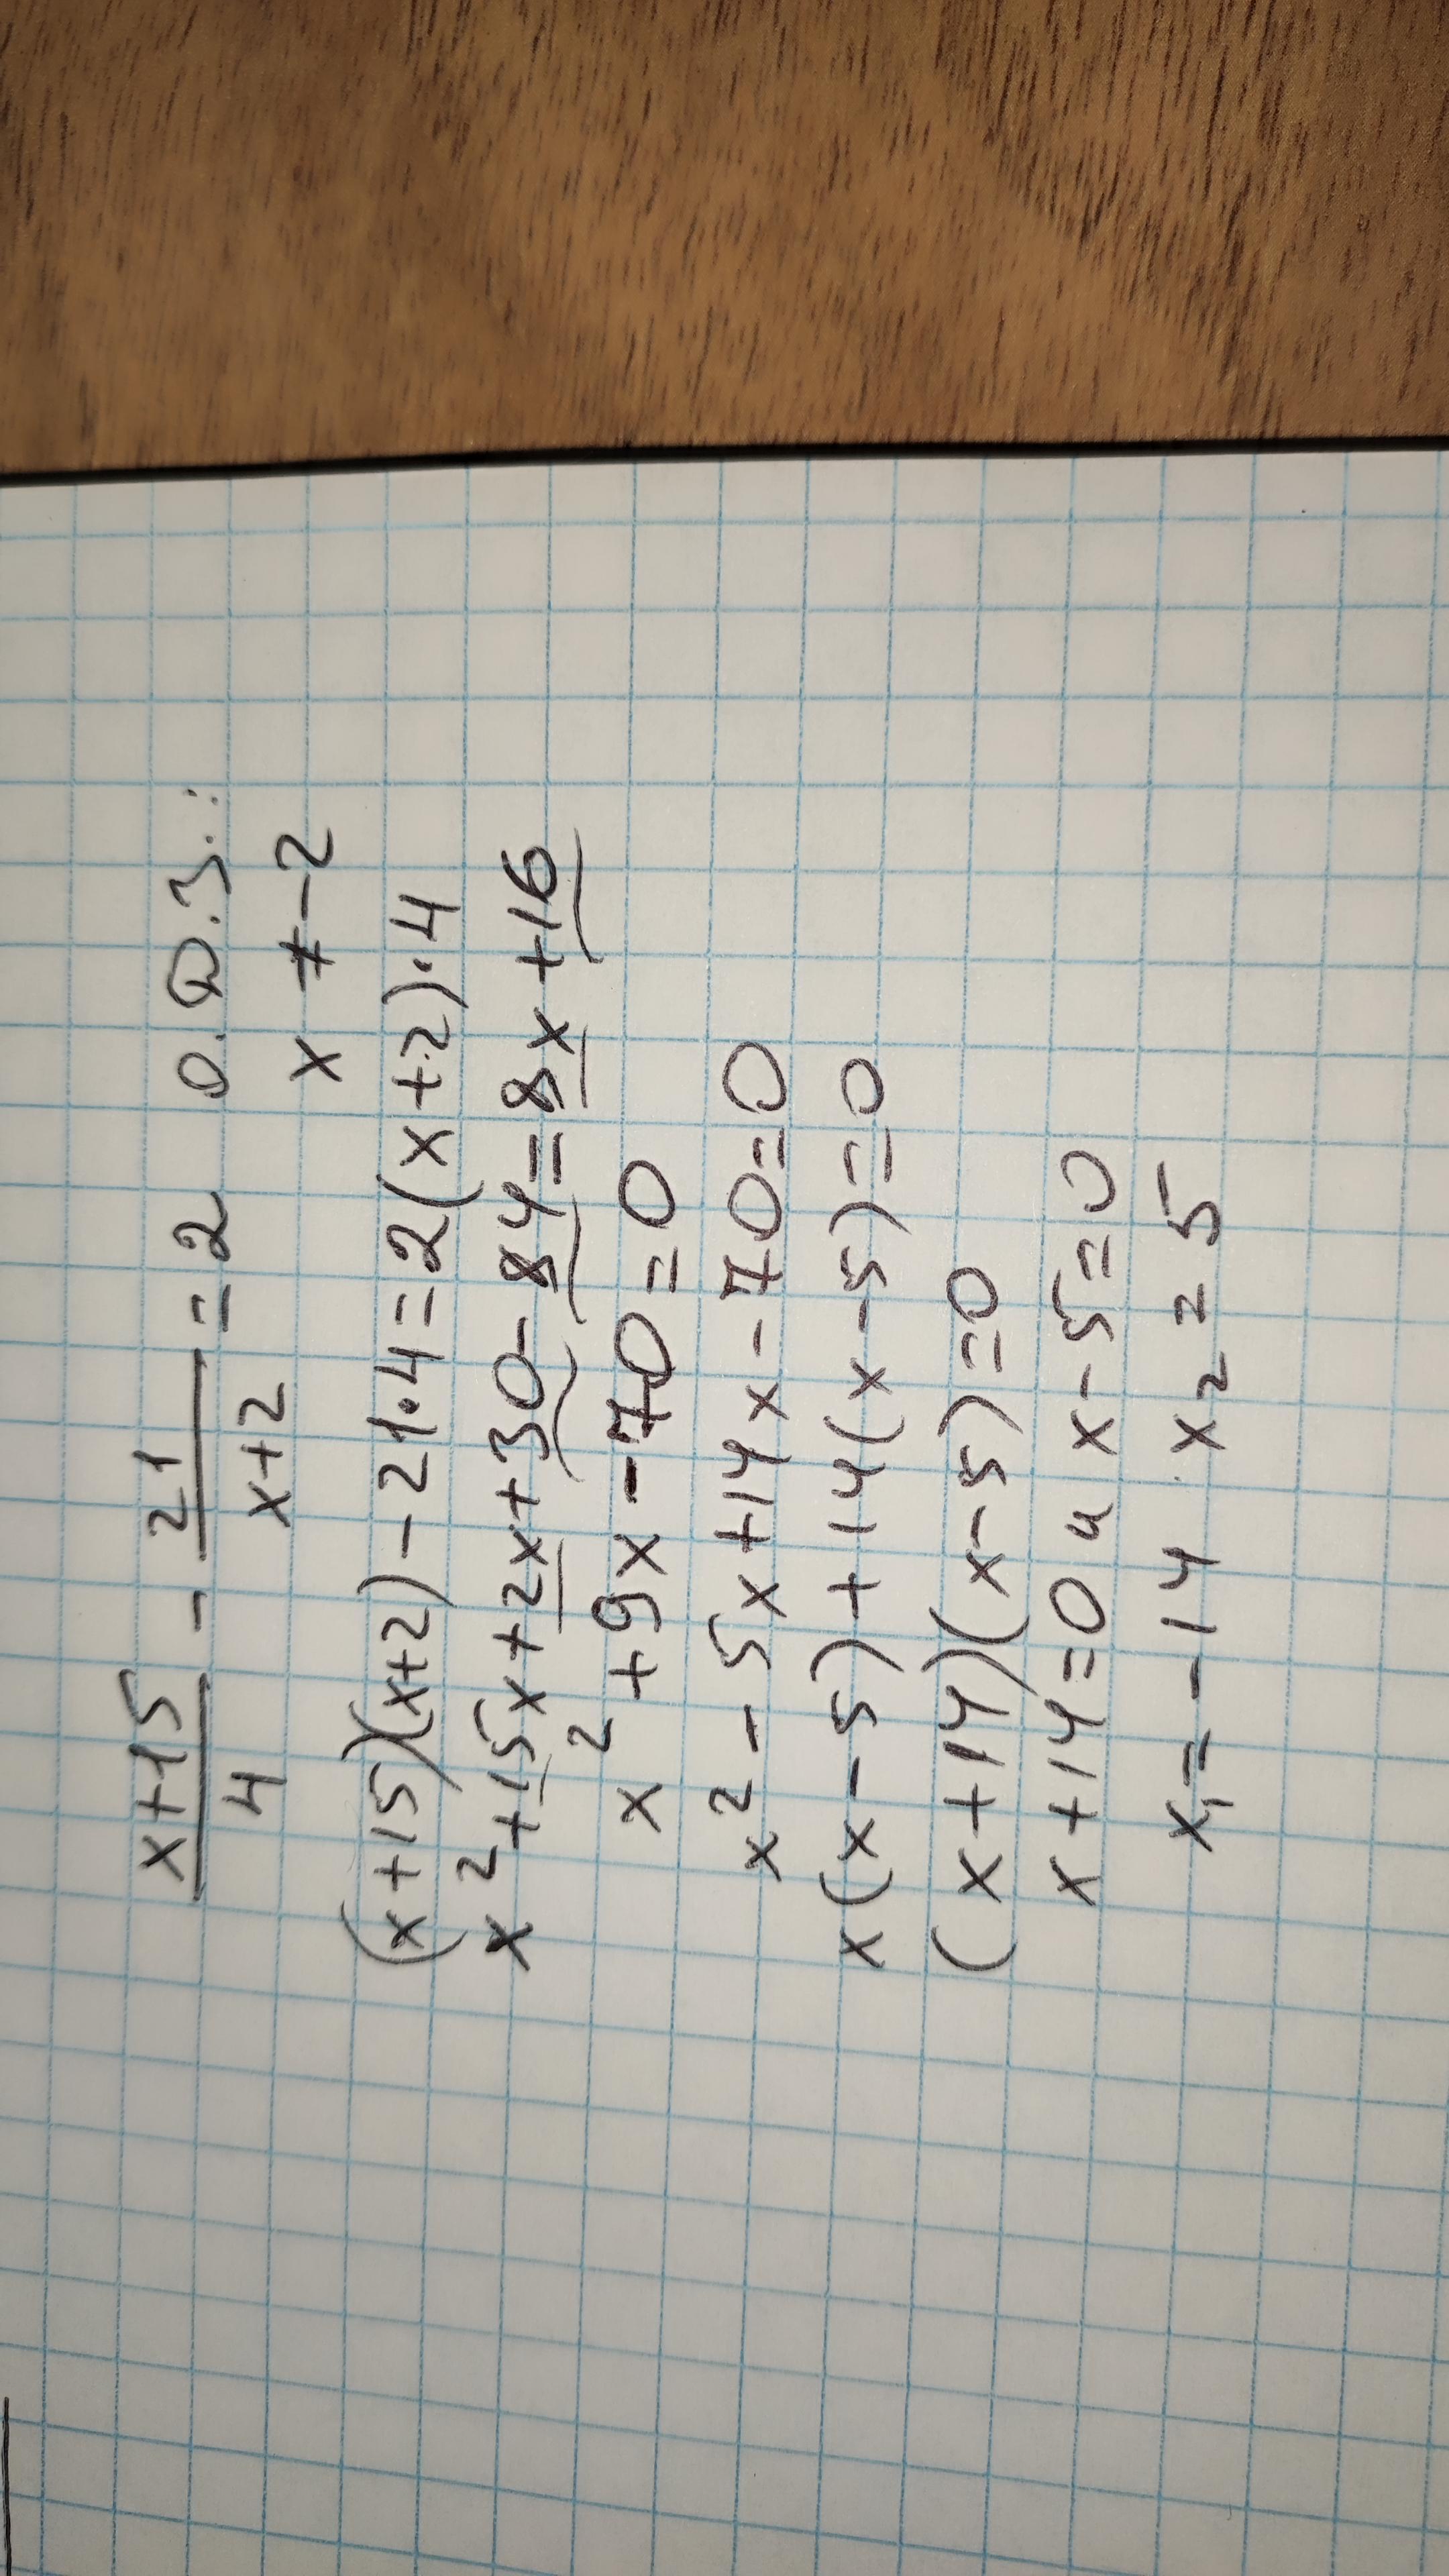 x+15/4 - 21/x+2 = 2 О.Д.З.:
x ≠ -2
(x+15)(x+2) - 21·4 = 2(x+2)·4
x² + 15x + 2x + 30 - 84 = 8x + 16
x² + 9x - 70 = 0
x² - 5x + 14x - 70 = 0
x(x-5) + 14(x-5) = 0
(x+14)(x-5) = 0
x + 14 = 0 и x - 5 = 0
x₁ = -14 x₂ = 5